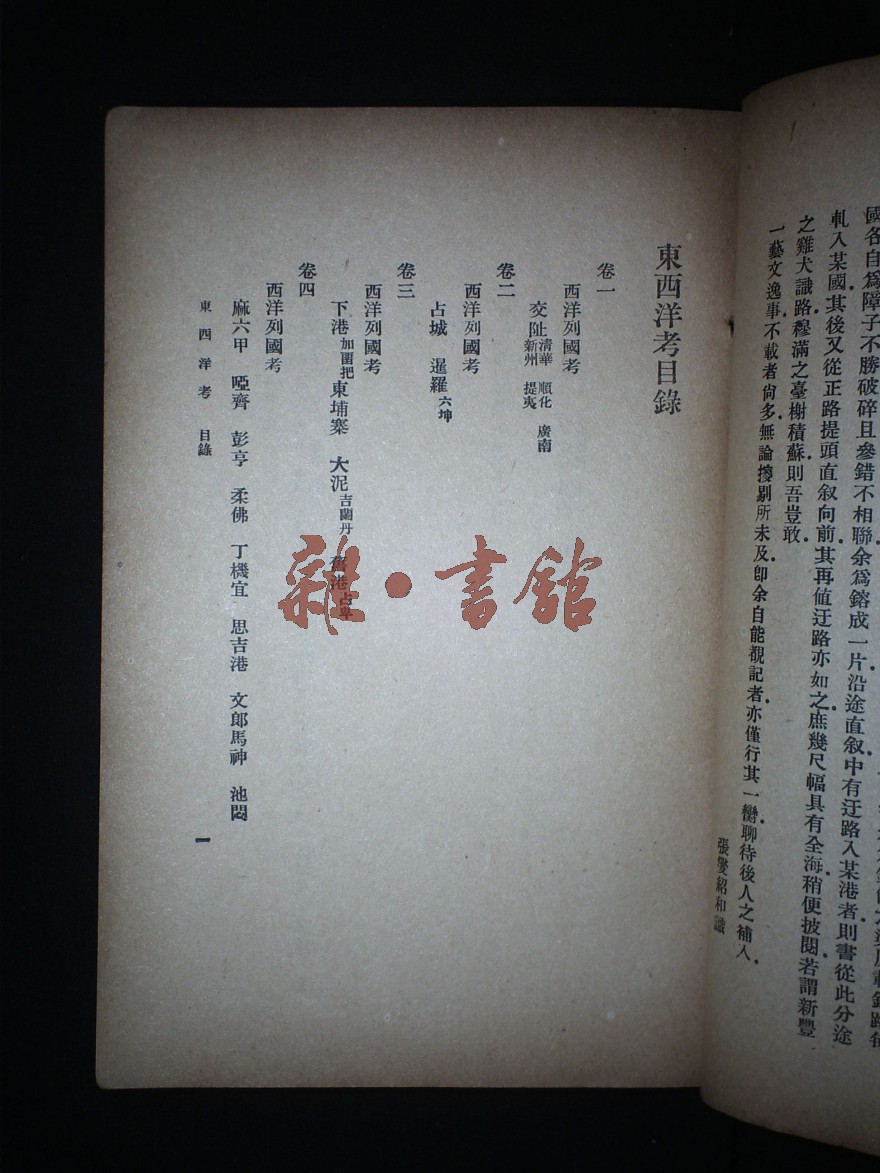 國各自爲障子不勝破碎且參錯不相聯余爲鎔成一片沿途直叙中有迂路入某港者則書從此分途
軋入某國其後又從正路提頭直叙向前其再値迂路亦如之庶幾尺幅具有全海稍便披閱若謂新豐
之雞犬識路穆滿之臺榭積蘇則吾豈敢
一藝文逸事不載者尙多無論搜剔所未及卽余自能覩記者亦僅行其一臠聊待後人之補入
張燮紹和識
東西洋考目錄
卷一
西洋列國考
交阯淸華 順化 廣南 新州 提夷
卷二
西洋列國考
占城 暹羅六坤
卷三
西洋列國考
下港加留𠯢東埔寨 大泥吉蘭丹 舊港占卑
卷四
西洋列國考
麻六甲 啞齊 彭亨 柔佛 丁機宜 思吉港 文郞馬神 池悶
東西洋考 目錄
一
雜·書館